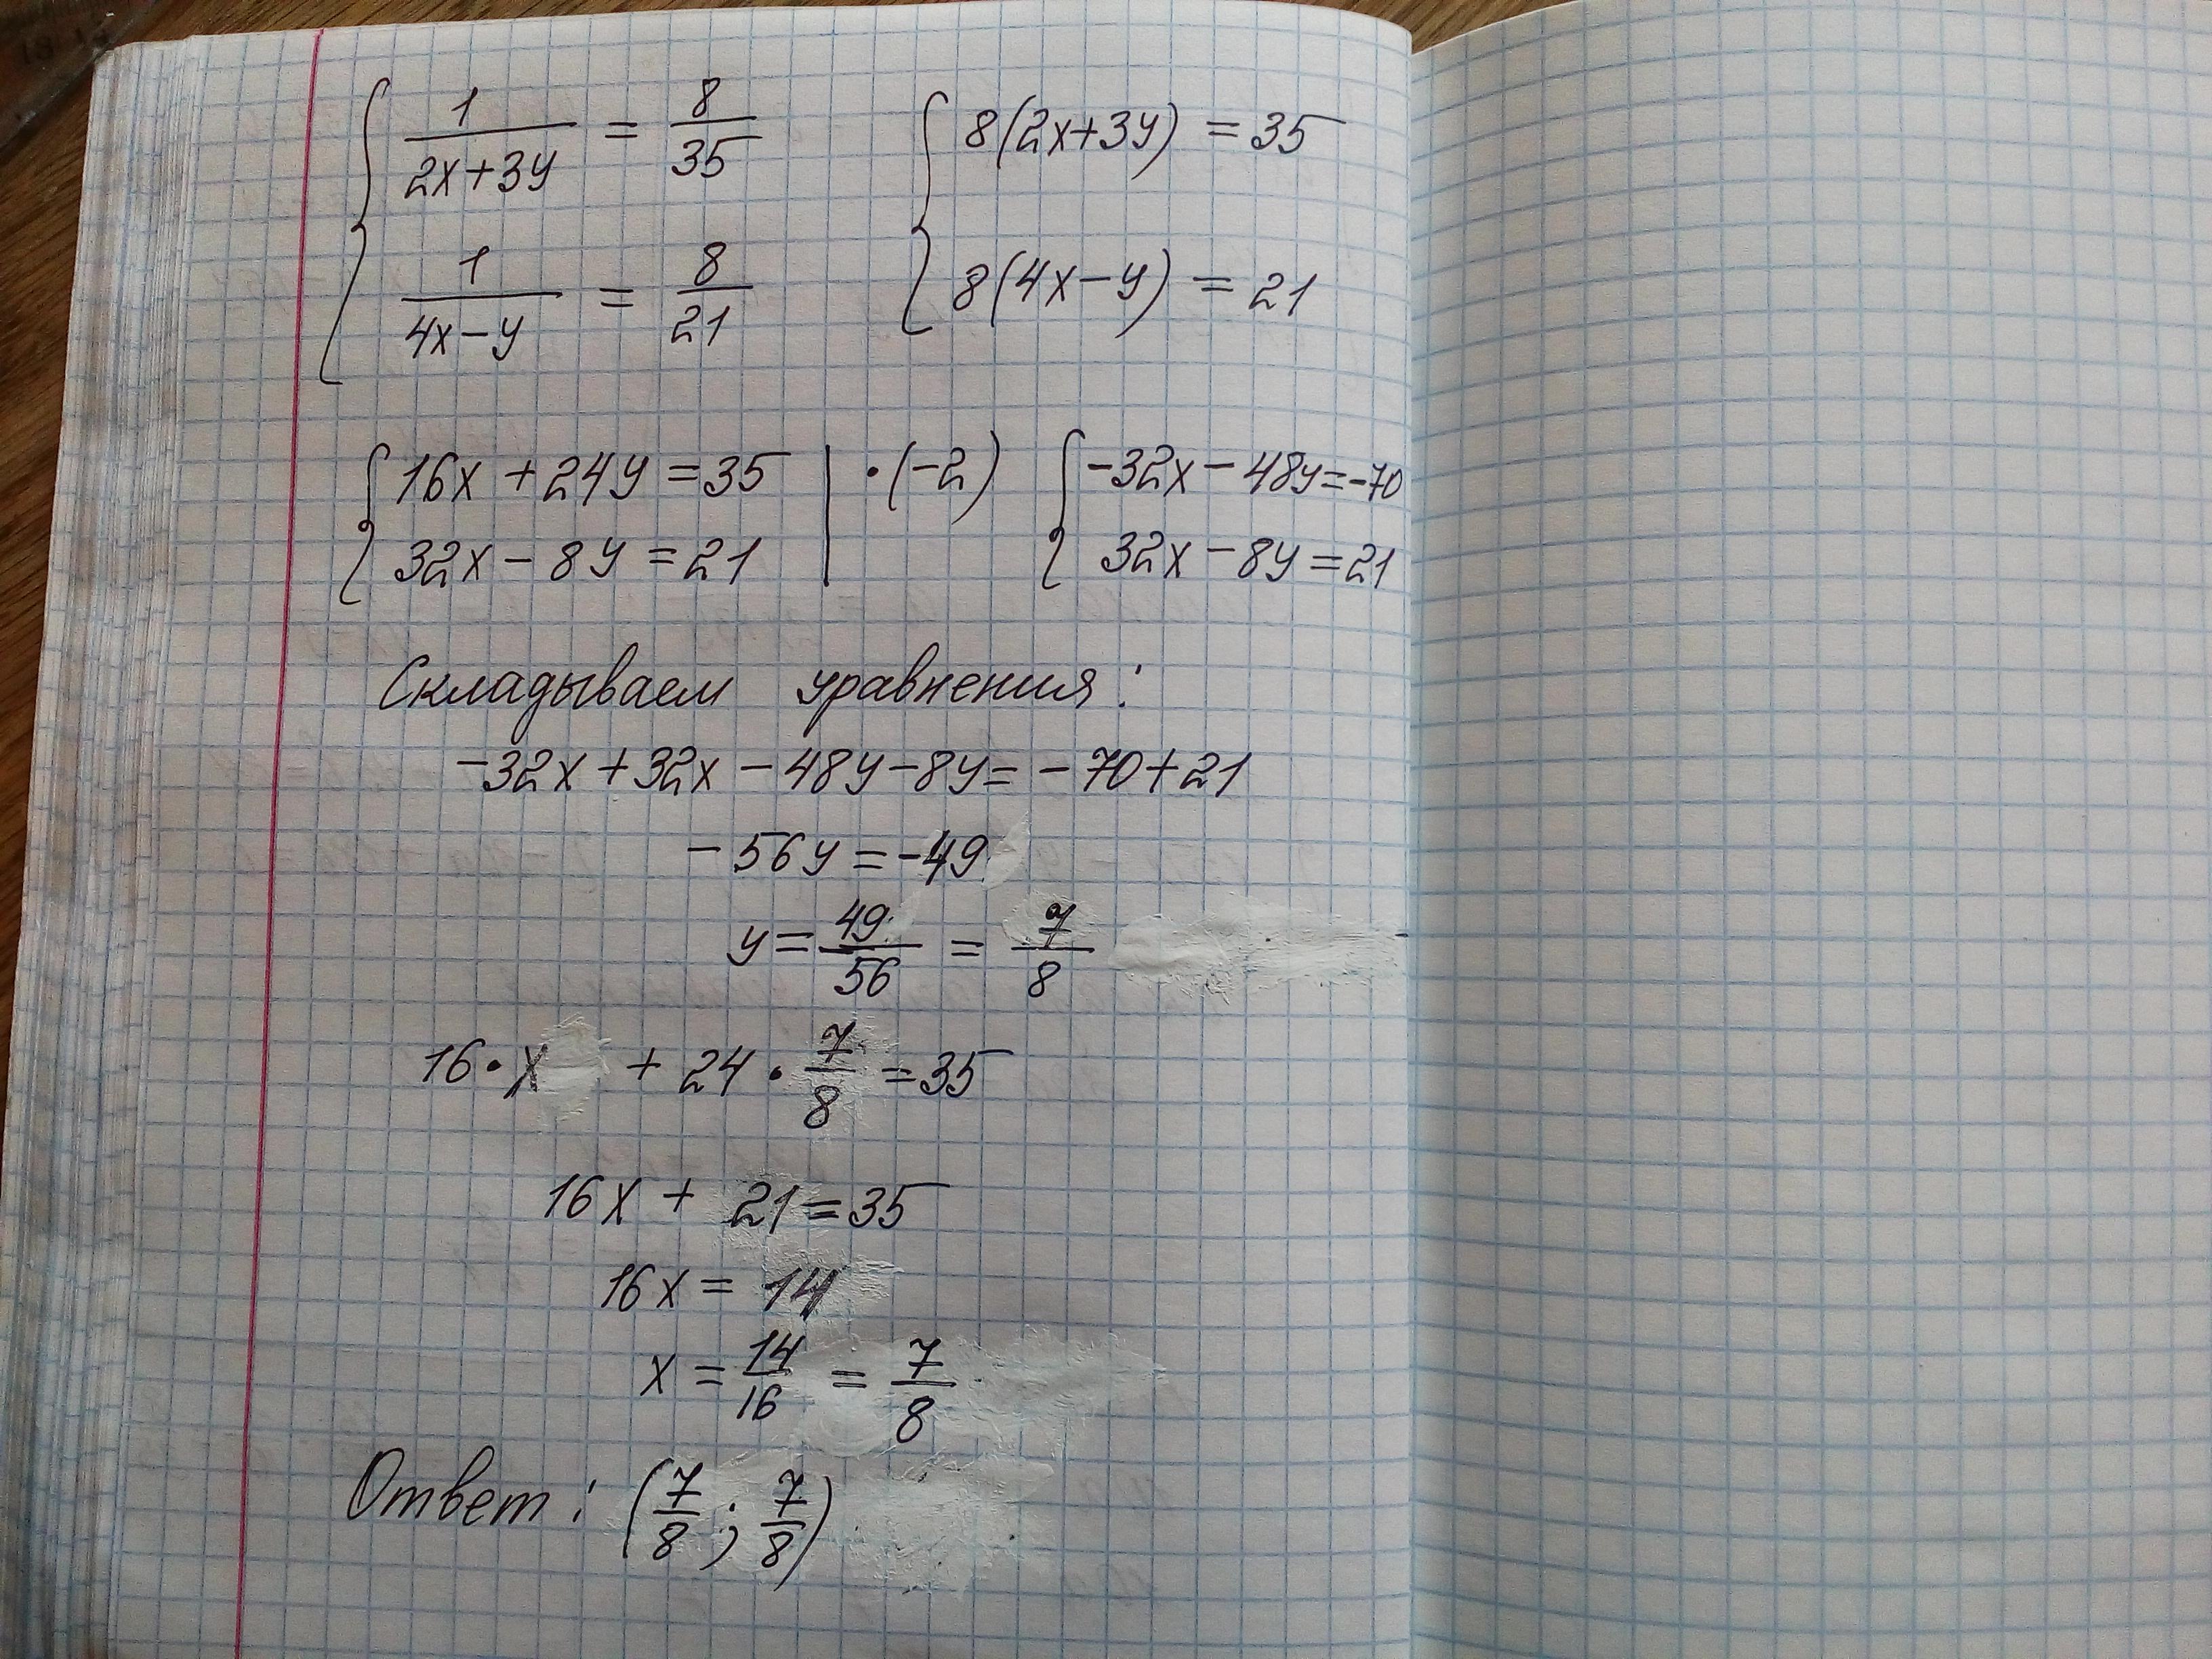 { 1/(2x+3y) = 8/35 { 8(2x+3y) = 35
1/(4x-y) = 8/21 8(4x-y) = 21
{ 16x + 24y = 35 | ·(-2) { -32x - 48y = -70
32x - 8y = 21 32x - 8y = 21
Складываем уравнения:
-32x + 32x - 48y - 8y = -70 + 21
-56y = -49
y = 49/56 = 7/8
16·x + 24·7/8 = 35
16x + 21 = 35
16x = 14
x = 14/16 = 7/8
Ответ: (7/8; 7/8)